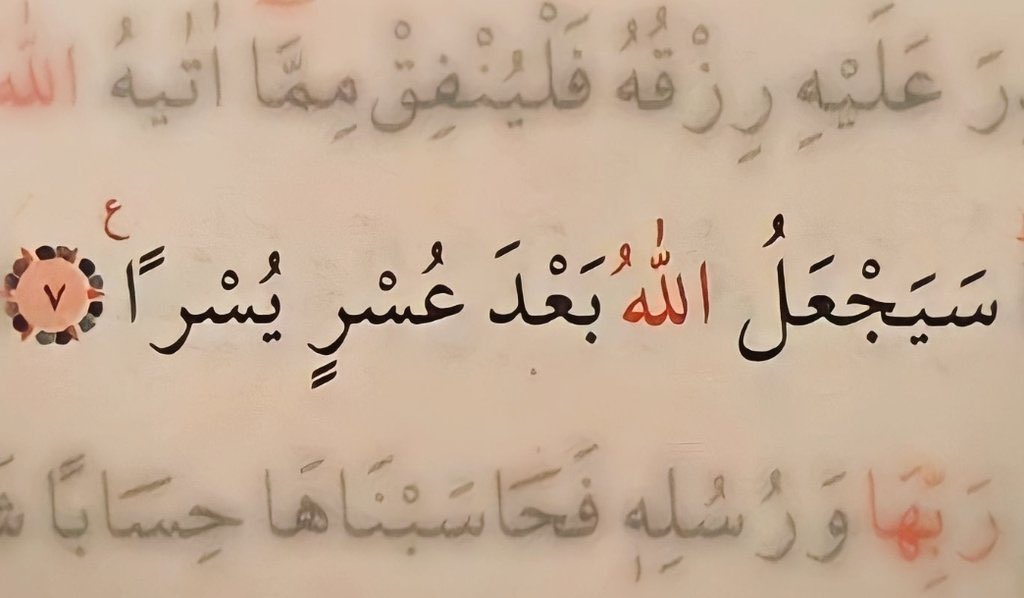 دَرَ عَلَيْهِ رِزْقُهُ فَلْيُنْفِقْ مِمَّا اٰتٰيهُ اللّٰهُ
سَيَجْعَلُ اللّٰهُ بَعْدَ عُسْرٍ يُسْرًا ع ٧
رَبِّهَا وَرُسُلِهٖ فَحَاسَبْنَاهَا حِسَابًا